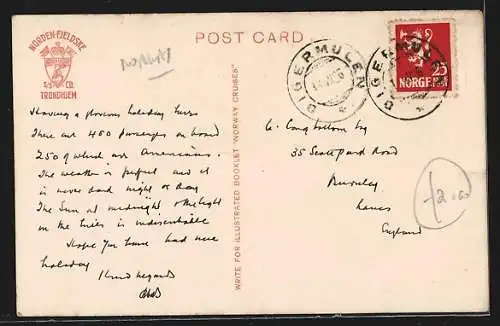 NORDEN-FJELDSKE
D/S CO.
TRONDHJEM
NORWAY
POST CARD
DIGERMULEN
DIGERMULEN
NORGE 25
Having a glorious holiday here
There are 460 passengers on board
250 of which are Americans.
The weather is perfect and it
is never dark night or day
The Sun at midnight & the light
on the hills is indescribable
I hope you have had nice
holiday
Kind regards
WRITE FOR ILLUSTRATED BOOKLET "NORWAY CRUISES"
Longbottom Esq
35 Scott Park Road
Burnley
Lancs
England
£2.00